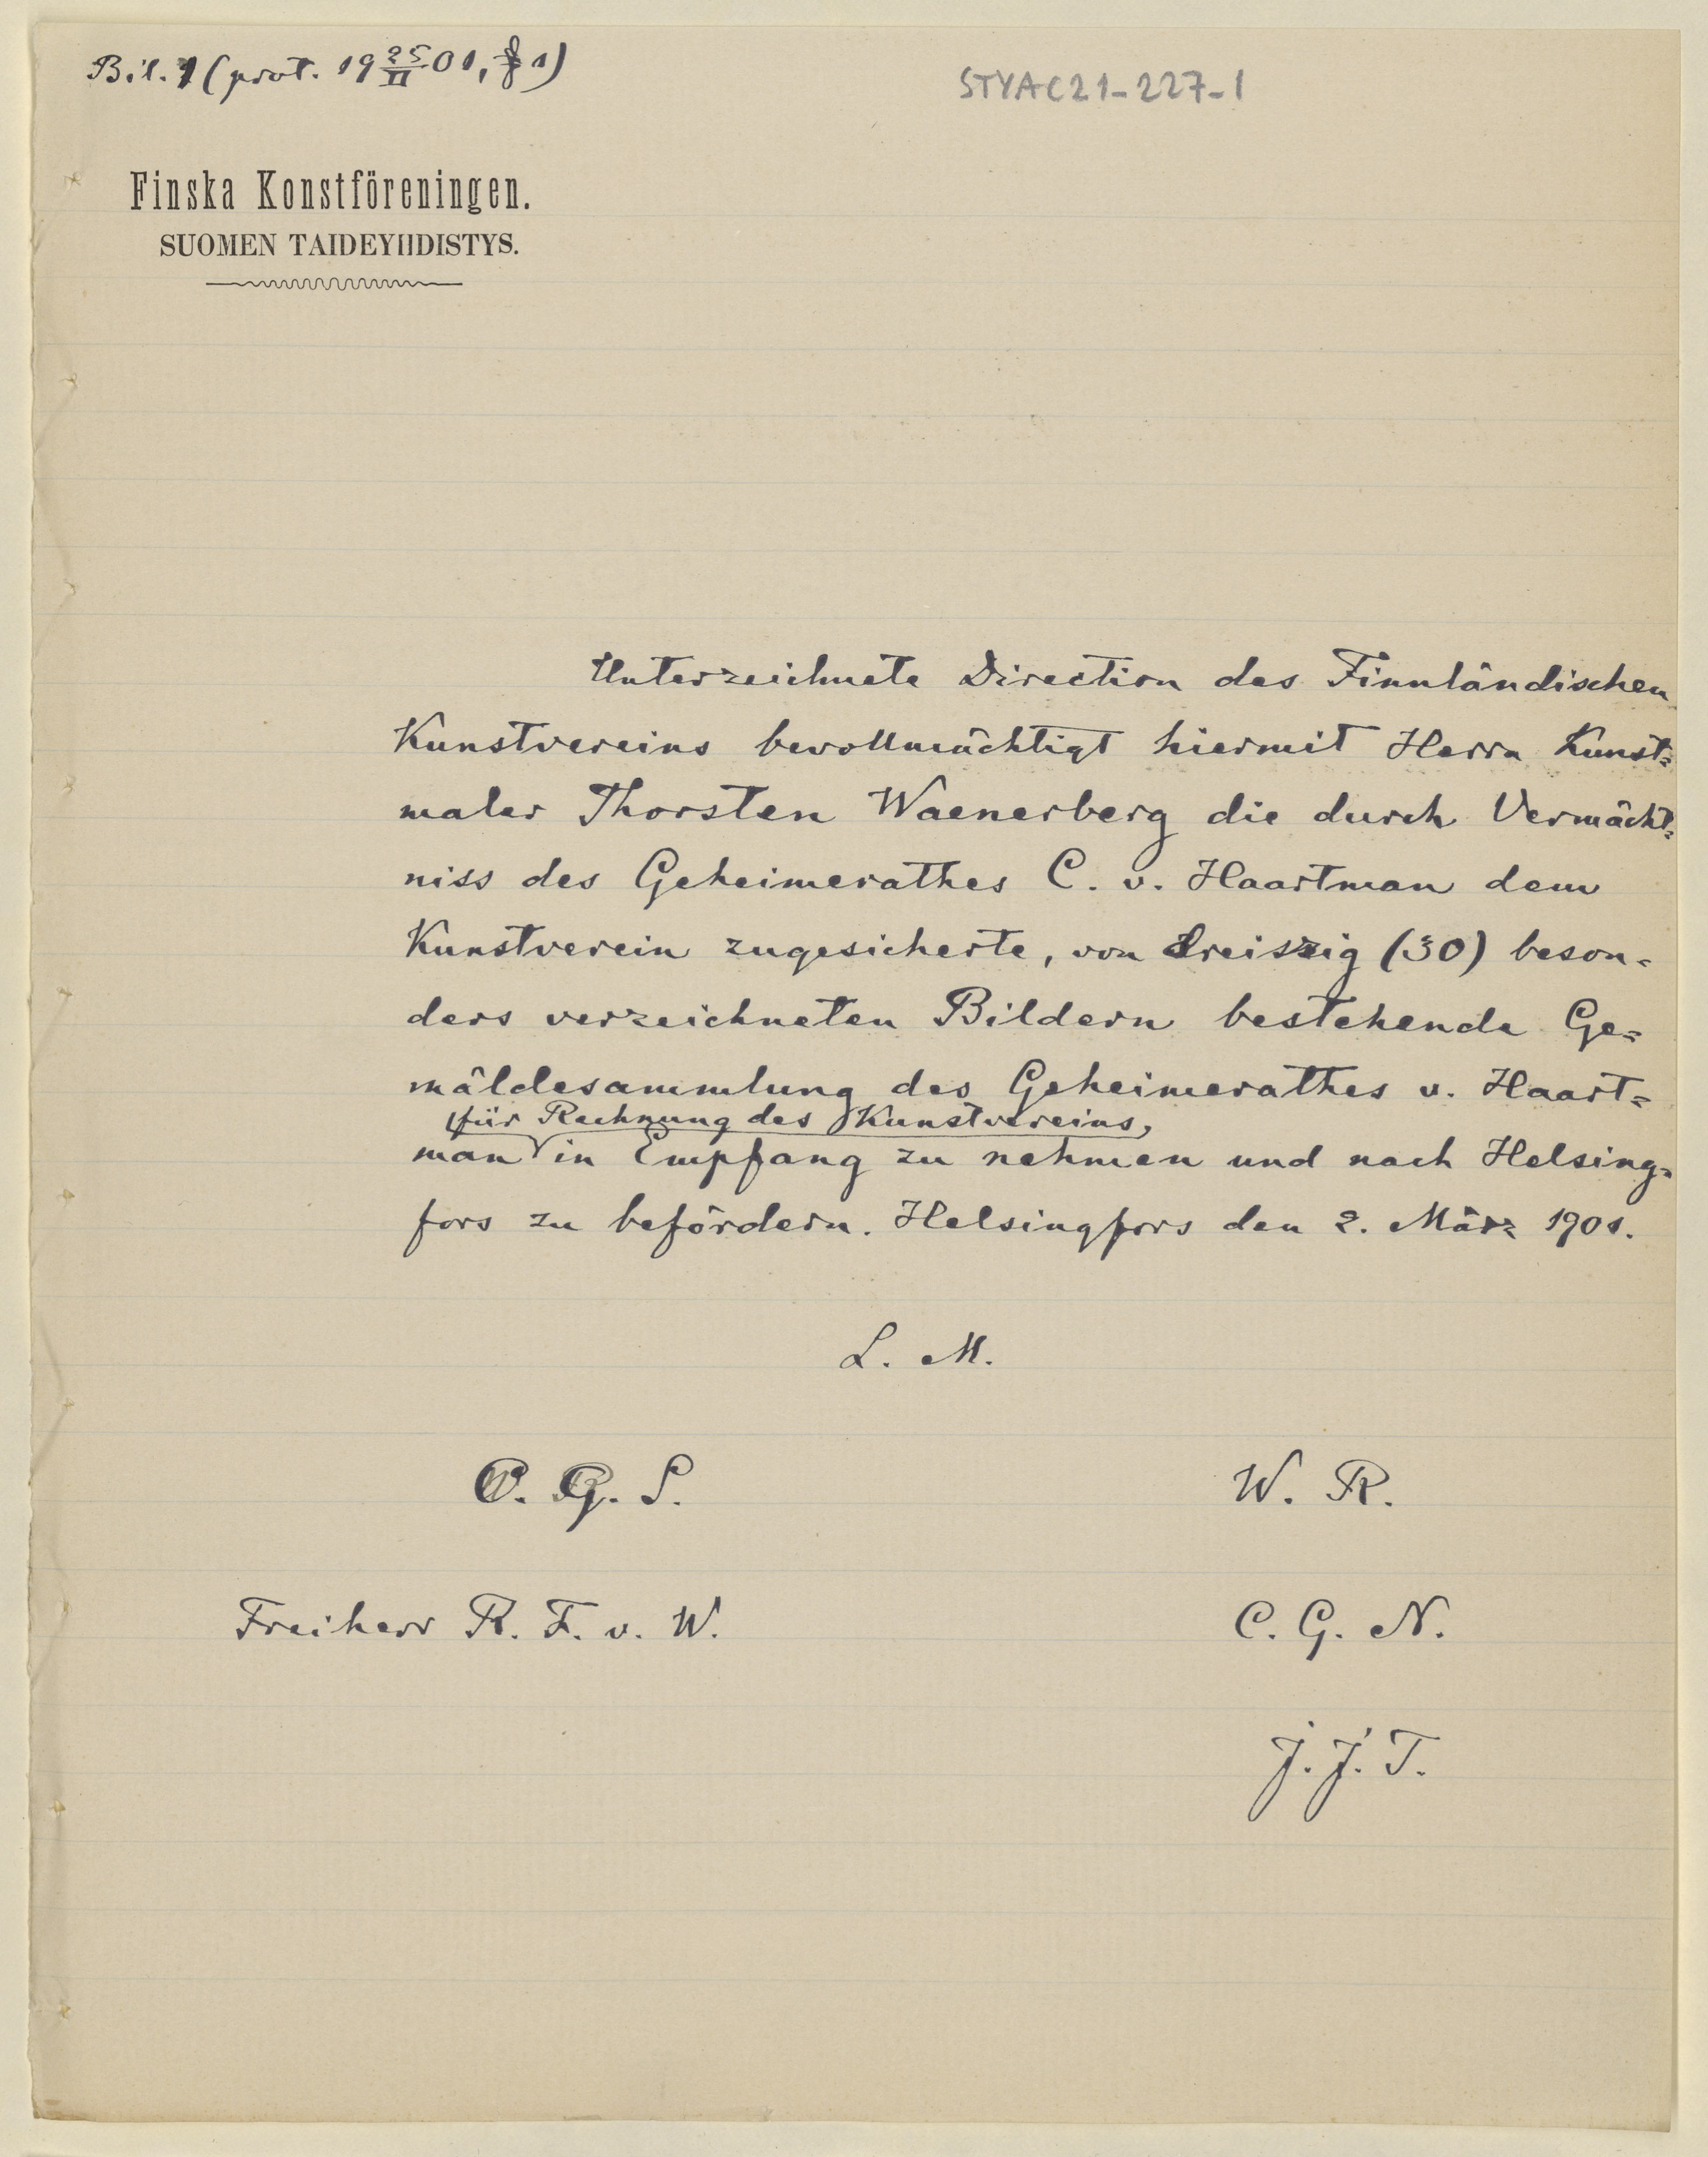 Bil. 1 (prot. 19 25/II 01, § 1)
STYAC21-227-1
Finska Konstföreningen.
SUOMEN TAIDEYHDISTYS.
Unterzeichnete Direction des Finnländischen
Kunstvereins bevollmächtigt hiermit Herrn Kunst=
maler Thorsten Waenerberg die durch Vermächt=
niss des Geheimerathes C. v. Haartman dem
Kunstverein zugesicherte, von dreiszig (30) beson=
ders verzeichneten Bildern bestehende Ge=
mäldesammlung des Geheimerathes v. Haart=
für Rechnung des Kunstvereins,
man in Empfang zu nehmen und nach Helsing=
fors zu befördern. Helsingfors den 2. März 1901.
L. M.
C. G. S. W. R.
Freiherr R. F. v. W. C. G. N.
J. J. T.